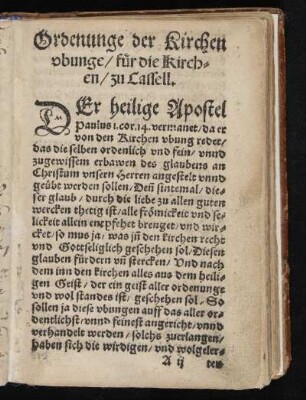 Ordenunge der Kirchen
vbunge/ für die Kirch-
en/ zu Cassell.
DEr heilige Apostel
Paulus 1. cor. 14. vermanet/ da er
von den Kirchen vbung redet/
das die selben ordenlich vnd fein/ vnnd
zugewissem erbawen des glaubens an
Christum vnsern Herren angestelt vnnd
geübt werden sollen/ Deñ sintemal/ die-
ser glaub/ durch die liebe zu allen guten
wercken thetig ist/ alle frömickeit vnd se-
lickeit allein entpfehet brenget/ vnd wir-
cket/ so mus ja/ was jñ den kirchen recht
vnd Gottseliglich geschehen sol/ Diesen
glauben fürdern vñ stercken/ Vnd nach
dem inn den kirchen alles aus dem heili-
gen Geist/ der ein geist aller ordenunge
vnd wol standes ist/ geschehen sol/ So
sollen ja diese vbungen auff das aller or-
dentlichst/ vnnd feinest angericht/ vnnd
verhandelt werden/ solchs zuerlangen/
haben sich die wirdigen/ vnd wolgeler-
A ij
ten